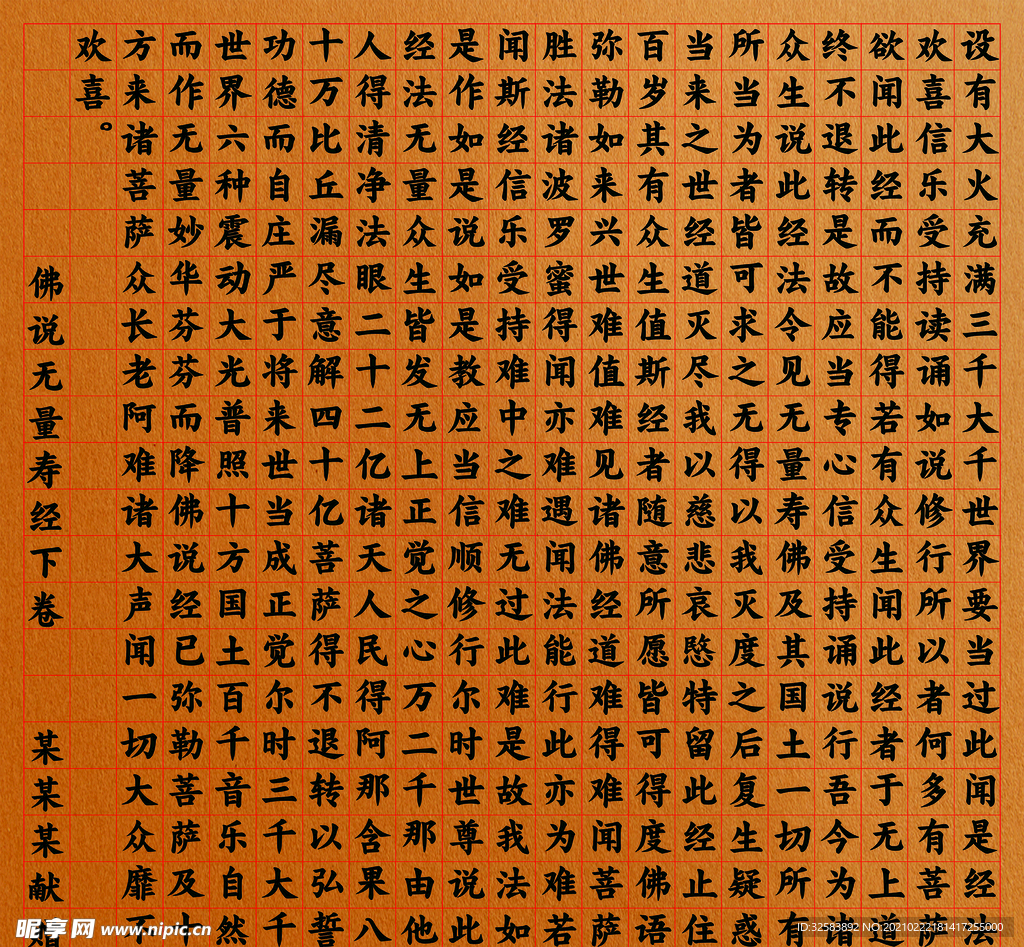 设有大火充满三千大千世界要当过此闻是经法
欢喜信乐受持读诵如说修行所以者何多有菩萨
欲闻此经而不能得若有众生闻此经者于无上道
终不退转是故应当专心信受持诵说行吾今为诸
众生说此经法令见无量寿佛及其国土一切所有
所当为者皆可求之无得以我灭度之后复生疑惑
当来之世经道灭尽我以慈悲哀愍特留此经止住
百岁其有众生值斯经者随意所愿皆可得度佛语
弥勒如来兴世难值难见诸佛经道难得难闻菩萨
胜法诸波罗蜜得闻亦难遇闻法能行此亦为难若
闻斯经信乐受持难中之难无过此难是故我法如
是作如是说如是教应当信顺修行尔时世尊说此
经法无量众生皆发无上正觉之心万二千那由他
人得清净法眼二十二亿诸天人民得阿那含果八
十万比丘漏尽意解四十亿菩萨得不退转以弘誓
功德而自庄严于将来世当成正觉尔时三千大千
世界六种震动大光普照十方国土百千音乐自然
而作无量妙华芬芬而降佛说经已弥勒菩萨及十
方来诸菩萨众长老阿难诸大声闻一切大众靡不
欢喜。
佛说无量寿经下卷 某某某献
昵享网 www.nipic.cn
ID:32583892 NO:20210222181417255000